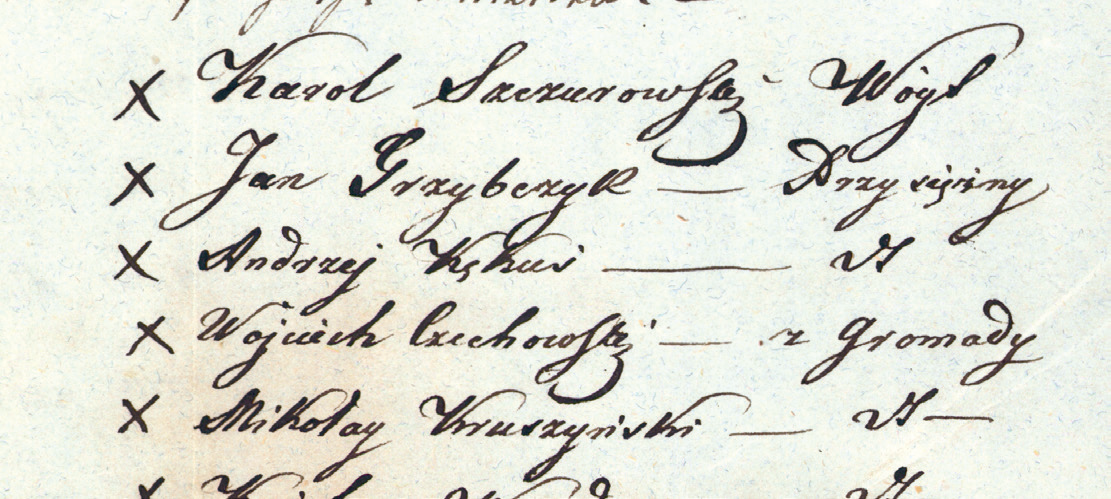 X Karol Szczurowski Wóyt
X Jan Grzybczyk — Przysiężny
X Andrzej Kękuś — dt
X Wojciech Czechowski — z Gromady
X Mikołay Kruszyński — dt —
X